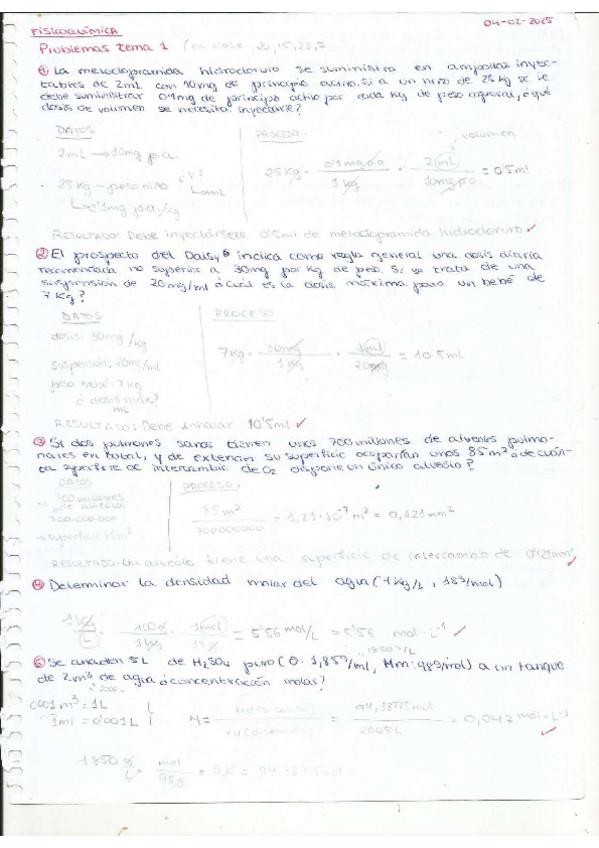 04-02-2025
FISICOQUÍMICA
Problemas tema 1 / en clase 20,15,23,7
① La metoclopramida hidrocloruro se suministra en ampollas inyec-
tables de 2mL con 10mg de principio activo. Si a un niño de 25 kg se le
debe suministrar 0'1mg de principio activo por cada kg de peso corporal, ¿qué
dosis de volumen se necesita inyectarle?
DATOS PROCESO volumen
2mL → 10mg p.a.
25Kg - peso niño ¿V? mL
25Kg · 0'1mg p.a / 1Kg · 2mL / 10mg p.a = 0'5ml
0'1mg p.a./kg
RESULTADO: Debe inyectársele 0'5ml de metoclopramida hidrocloruro ✓
② El prospecto del Dalsy® indica como regla general una dosis diaria
recomendada no superior a 30mg por Kg de peso. Si se trata de una
suspensión de 20mg/ml ¿cuál es la dosis máxima para un bebé de
7 Kg?
DATOS PROCESO
dosis: 30mg/kg
suspensión: 20mg/ml
7Kg · 30mg / 1Kg · 1ml / 20mg = 10'5mL
peso bebé: 7kg
¿dosis máx?
mL
RESULTADO: Debe inhalar 10'5ml ✓
③ Si dos pulmones sanos tienen unos 700 millones de alveolos pulmo-
nares en total, y de extender su superficie ocuparían unos 85m² ¿de cuán-
ta superficie de intercambio de O₂ dispone un único alveolo?
DATOS PROCESO:
→ 700 millones
de alveolos
700.000.000
85m² / 700000000 = 1,21·10⁻⁷m² = 0,121mm²
→ superficie 85m²
RESULTADO: Un alveolo tiene una superficie de intercambio de 0'121mm² ✓
④ Determinar la densidad molar del agua (1Kg/L, 18g/mol)
1Kg / L · 1000g / 1Kg · 1mol / 18g = 5'56 mol/L = 5'56 mol·L⁻¹ ✓
1850g/L
⑥ Se añaden 5L de H₂SO₄ puro (ρ: 1,85g/ml, Mm: 98g/mol) a un tanque
de 2m³ de agua ¿concentración molar?
0'001m³ = 1L
1ml = 0'001L
M = moles soluto / V(disolución) = 94,38775mol / 2005L = 0,047 mol·L⁻¹ ✓
1850g / L · mol / 98g · 5L = 94,38775mol